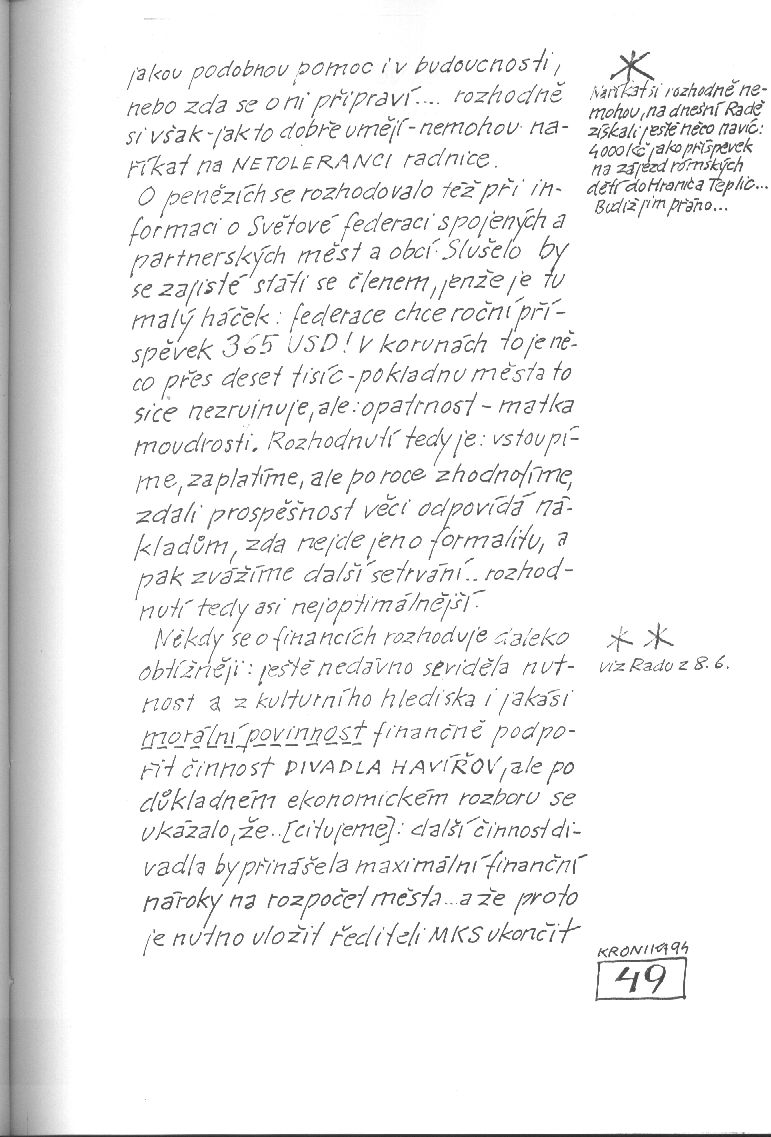 jakou podobnou pomoc i v budoucnosti,
nebo zda se oni připraví.... rozhodně
si však - jak to dobře umějí - nemohou na-
říkat na NETOLERANCI radnice.
O penězích se rozhodovalo též při in-
formaci o Světové federaci spojených a
partnerských měst a obcí. Slušelo by
se zajisté státi se členem, jenže je tu
malý háček: federace chce roční pří-
spěvek 365 USD! V korunách to je ně-
co přes deset tisíc - pokladnu města to
sice nezruinuje, ale: opatrnost - matka
moudrosti. Rozhodnutí tedy je: vstoupí-
me, zaplatíme, ale po roce zhodnotíme,
zdali prospěšnost věci odpovídá ná-
kladům, zda nejde jen o formalitu, a
pak zvážíme další setrvání.. rozhod-
nutí tedy asi nejoptimálnější.
Někdy se o financích rozhoduje daleko
obtížněji: ještě nedávno se viděla nut-
nost a z kulturního hlediska i jakási
morální povinnost finančně podpo-
řit činnost DIVADLA HAVÍŘOV, ale po
důkladném ekonomickém rozboru se
ukázalo, že..[citujeme]: další činnost di-
vadla by přinášela maximální finanční
nároky na rozpočet města...a že proto
je nutno uložit řediteli MKS ukončit
*
Naříkat si rozhodně ne-
mohou, na dnešní Radě
získali ještě něco navíc:
4000 Kč jako příspěvek
na zájezd romských
dětí do Hranic a Teplic...
Budiž jim přáno...
* *
viz Radu z 8. 6.
KRONIKA 94
49